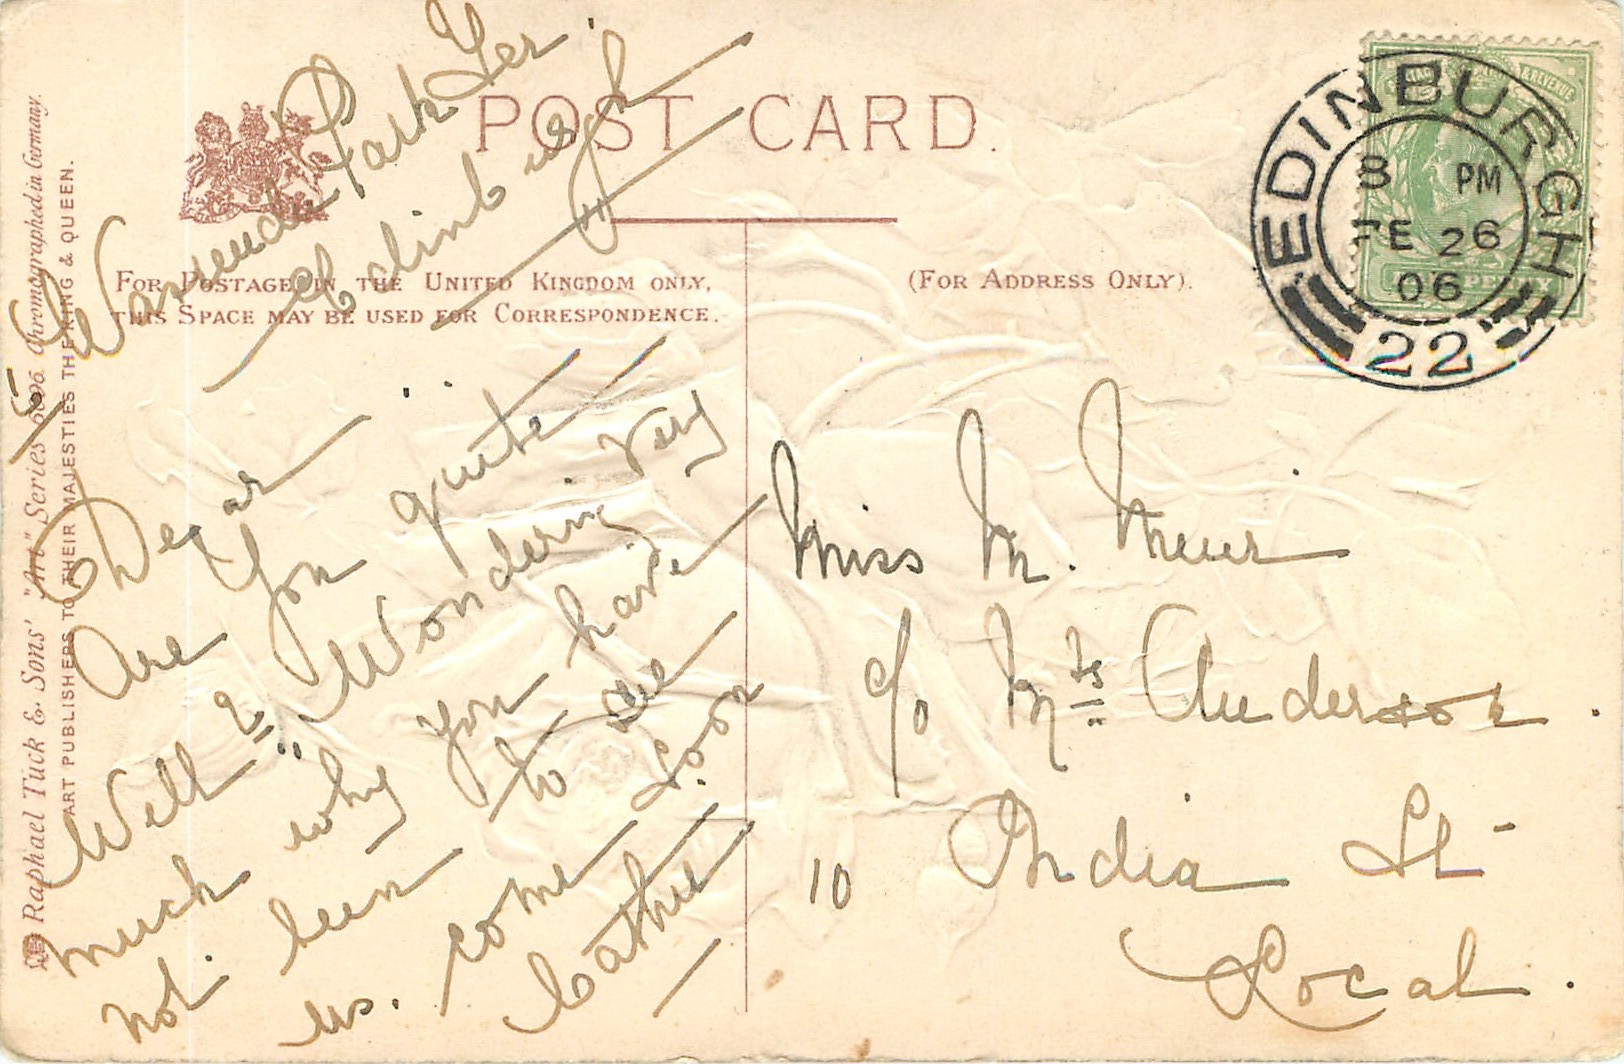 POST CARD.
FOR POSTAGE IN THE UNITED KINGDOM ONLY,
THIS SPACE MAY BE USED FOR CORRESPONDENCE.
(FOR ADDRESS ONLY).
Raphael Tuck & Sons' "Art" Series 6096. Chromographed in Germany.
ART PUBLISHERS TO THEIR MAJESTIES THE KING & QUEEN.
POSTAGE & REVENUE
EDINBURGH
8 PM
FE 26
06
22
5 Warrender Park Ter.
Edinburgh
Dear
Are you quite
Well? Wondering very
much why you have
not been to see
us. come soon
Cathie
Miss M. Muir
c/o Mrs Anderson.
10 India St
Local.